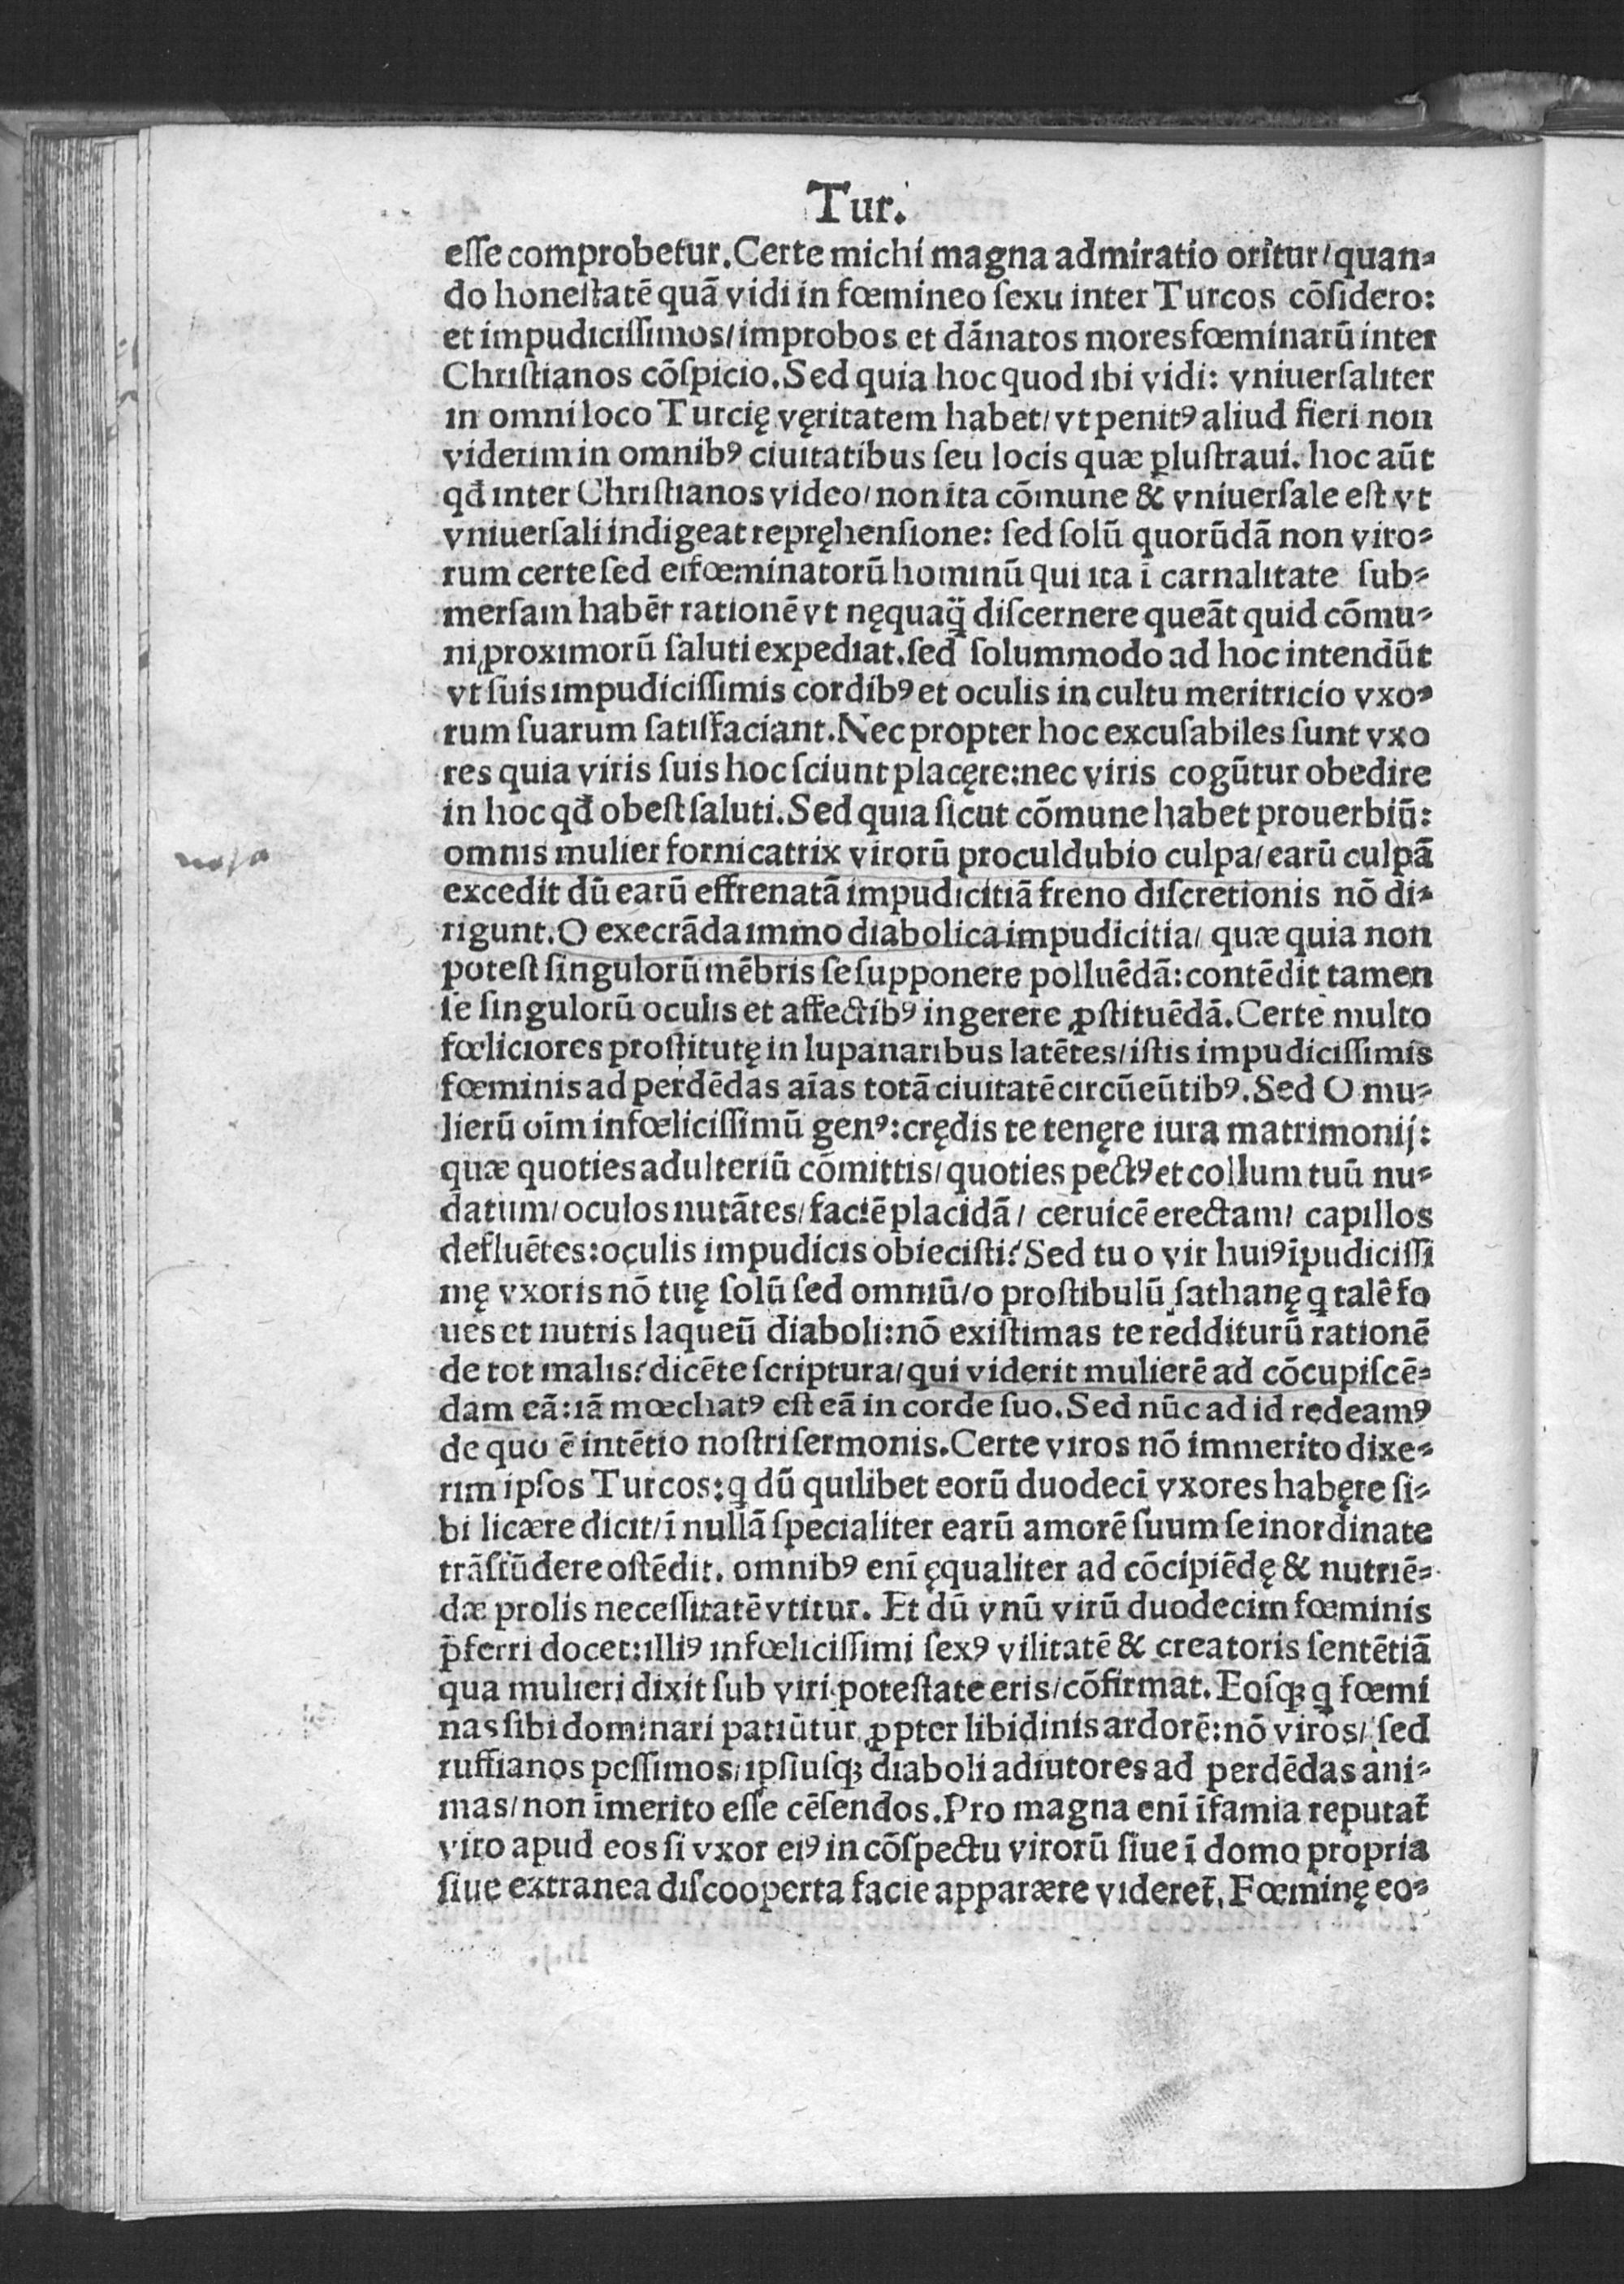 Tur.
eſſe comprobetur. Certe michi magna admiratio oritur/quan⸗
do honeſtatē quā vidi in fœmineo ſexu inter Turcos cōſidero:
et impudiciſſimos/improbos et dānatos mores fœminarū inter
Chriſtianos cōſpicio. Sed quia hoc quod ibi vidi: vniuerſaliter
in omni loco Turcię vęritatem habet/vt penitꝰ aliud fieri non
viderim in omnibꝰ ciuitatibus ſeu locis quæ ꝑluſtraui. hoc aūt
qđ inter Chriſtianos video/non ita cōmune & vniuerſale eſt vt
vniuerſali indigeat repręhenſione: ſed ſolū quorūdā non viro⸗
rum certe ſed effœminatorū hominū qui ita ī carnalitate ſub⸗
merſam habēt rationē vt nęquaq̈ diſcernere queāt quid cōmu⸗
ni proximorū ſaluti expediat. ſed ſolummodo ad hoc intendūt
vt ſuis impudiciſſimis cordibꝰ et oculis in cultu meritricio vxo⸗
rum ſuarum ſatiſfaciant. Nec propter hoc excuſabiles ſunt vxo
res quia viris ſuis hoc ſciunt placęre: nec viris cogūtur obedire
in hoc qđ obeſt ſaluti. Sed quia ſicut cōmune habet prouerbiū:
omnis mulier fornicatrix virorū proculdubio culpa/earū culpā
excedit dū earū effrenatā impudicitiā freno diſcretionis nō di⸗
rigunt. O execrāda immo diabolica impudicitia/ quæ quia non
poteſt ſingulorū mēbris ſe ſupponere polluēdā: contēdit tamen
ſe ſingulorū oculis et affectibꝰ ingerere ꝓſtituēdā. Certe multo
fœliciores proſtitutę in lupanaribus latētes/iſtis impudiciſſimis
fœminis ad perdēdas aīas totā ciuitatē circūeūtibꝰ. Sed O mu⸗
lierū oīm infœliciſſimū genꝰ: crędis te tenęre iura matrimonij:
quæ quoties adulteriū cōmittis/quoties pectꝰ et collum tuū nu⸗
datum/oculos nutātes/faciē placidā/ ceruicē erectam/ capillos
defluētes: oculis impudicis obieciſti? Sed tu o vir huiꝰ īpudiciſſi
mę vxoris nō tuę ſolū ſed omniū/o proſtibulū ſathanę q talē fo
ues et nutris laqueū diaboli: nō exiſtimas te redditurū rationē
de tot malis? dicēte ſcriptura/qui viderit mulierē ad cōcupiſcē⸗
dam eā: iā mœchatꝰ eſt eā in corde ſuo. Sed nūc ad id redeamꝰ
de quo ē intētio noſtri ſermonis. Certe viros nō immerito dixe⸗
rim ipſos Turcos: q dū quilibet eorū duodecī vxores habęre ſi⸗
bi licære dicit/ī nullā ſpecialiter earū amorē ſuum ſe inordinate
trāſfūdere oſtēdit. omnibꝰ enī ęqualiter ad cōcipiēdę & nutriē⸗
dæ prolis neceſſitatē vtitur. Et dū vnū virū duodecim fœminis
p̄ferri docet: illiꝰ infœliciſſimi ſexꝰ vilitatē & creatoris ſentētiā
qua mulieri dixit ſub viri poteſtate eris/cōfirmat. Eoſqꝫ q fœmi
nas ſibi dominari patiūtur ꝓpter libidinis ardorē: nō viros/ ſed
ruffianos peſſimos/ipſiuſqꝫ diaboli adiutores ad perdēdas ani⸗
mas/non īmerito eſſe cēſendos. Pro magna enī īfamia reputat̄
viro apud eos ſi vxor eiꝰ in cōſpectu virorū ſiue ī domo propria
ſiue extranea diſcooperta facie apparære videret̄. Fœminę eo⸗